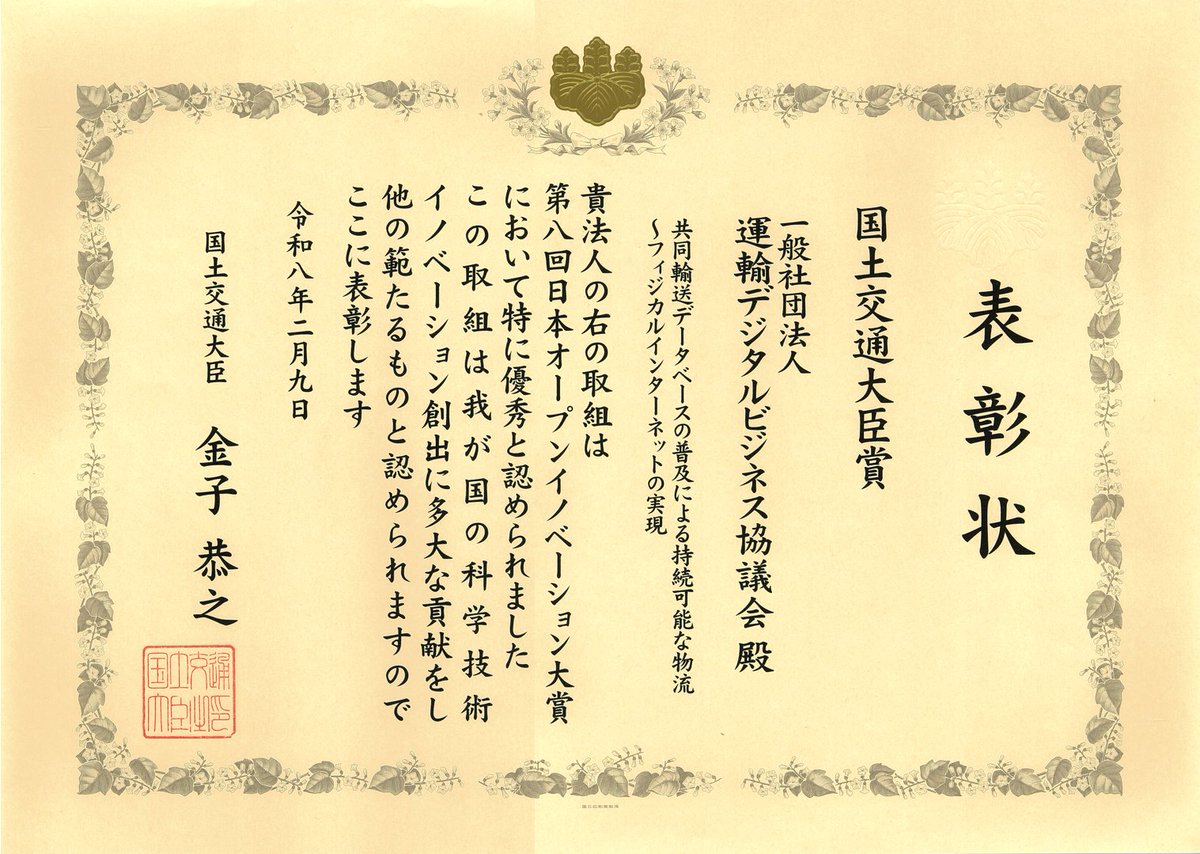 表彰状
国土交通大臣賞
一般社団法人
運輸デジタルビジネス協議会 殿
共同輸送データベースの普及による持続可能な物流
～フィジカルインターネットの実現
貴法人の右の取組は
第八回日本オープンイノベーション大賞
において特に優秀と認められました
この取組は我が国の科学技術
イノベーション創出に多大な貢献をし
他の範たるものと認められますので
ここに表彰します
令和八年二月九日
国土交通大臣 金子 恭之